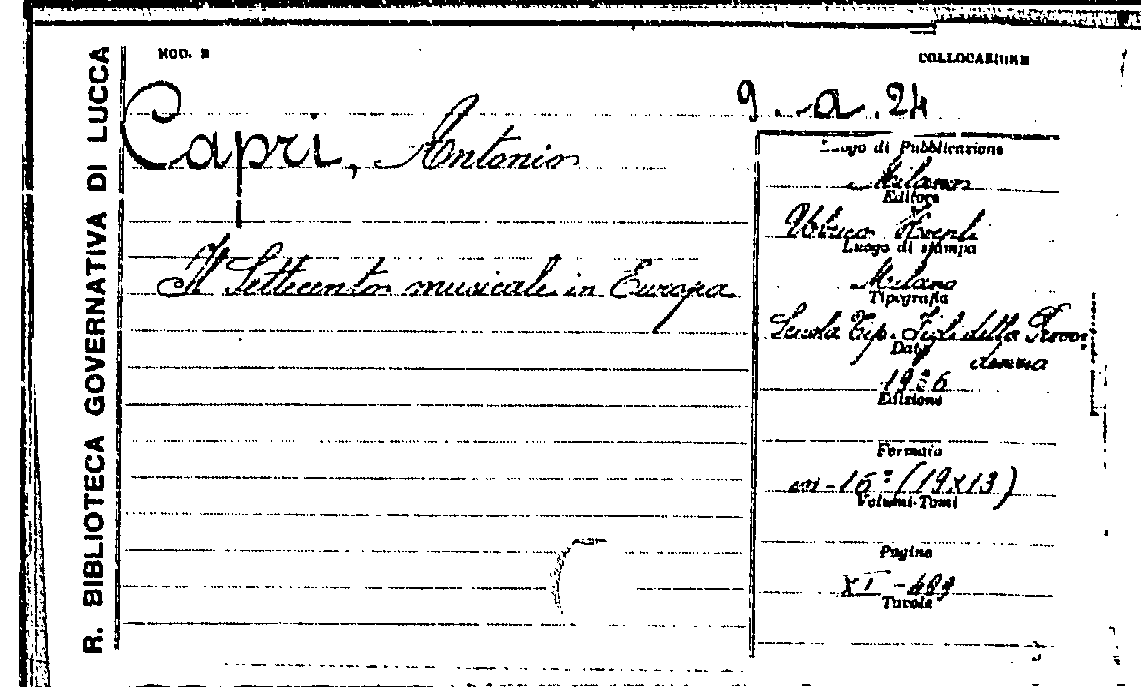 R. BIBLIOTECA GOVERNATIVA DI LUCCA
MOD. 2
COLLOCAZIONE
9.-a.24
Capri, Antonio
Il Settecento musicale in Europa
Luogo di Pubblicazione
Milano
Editore
Ulrico Hoepli
Luogo di stampa
Milano
Tipografia
Scuola Tip. Figli della Provvi
denza
Data
1936
Edizione
Formato
in-16º (19x13)
Volumi-Tomi
Pagine
XI-483
Tavole